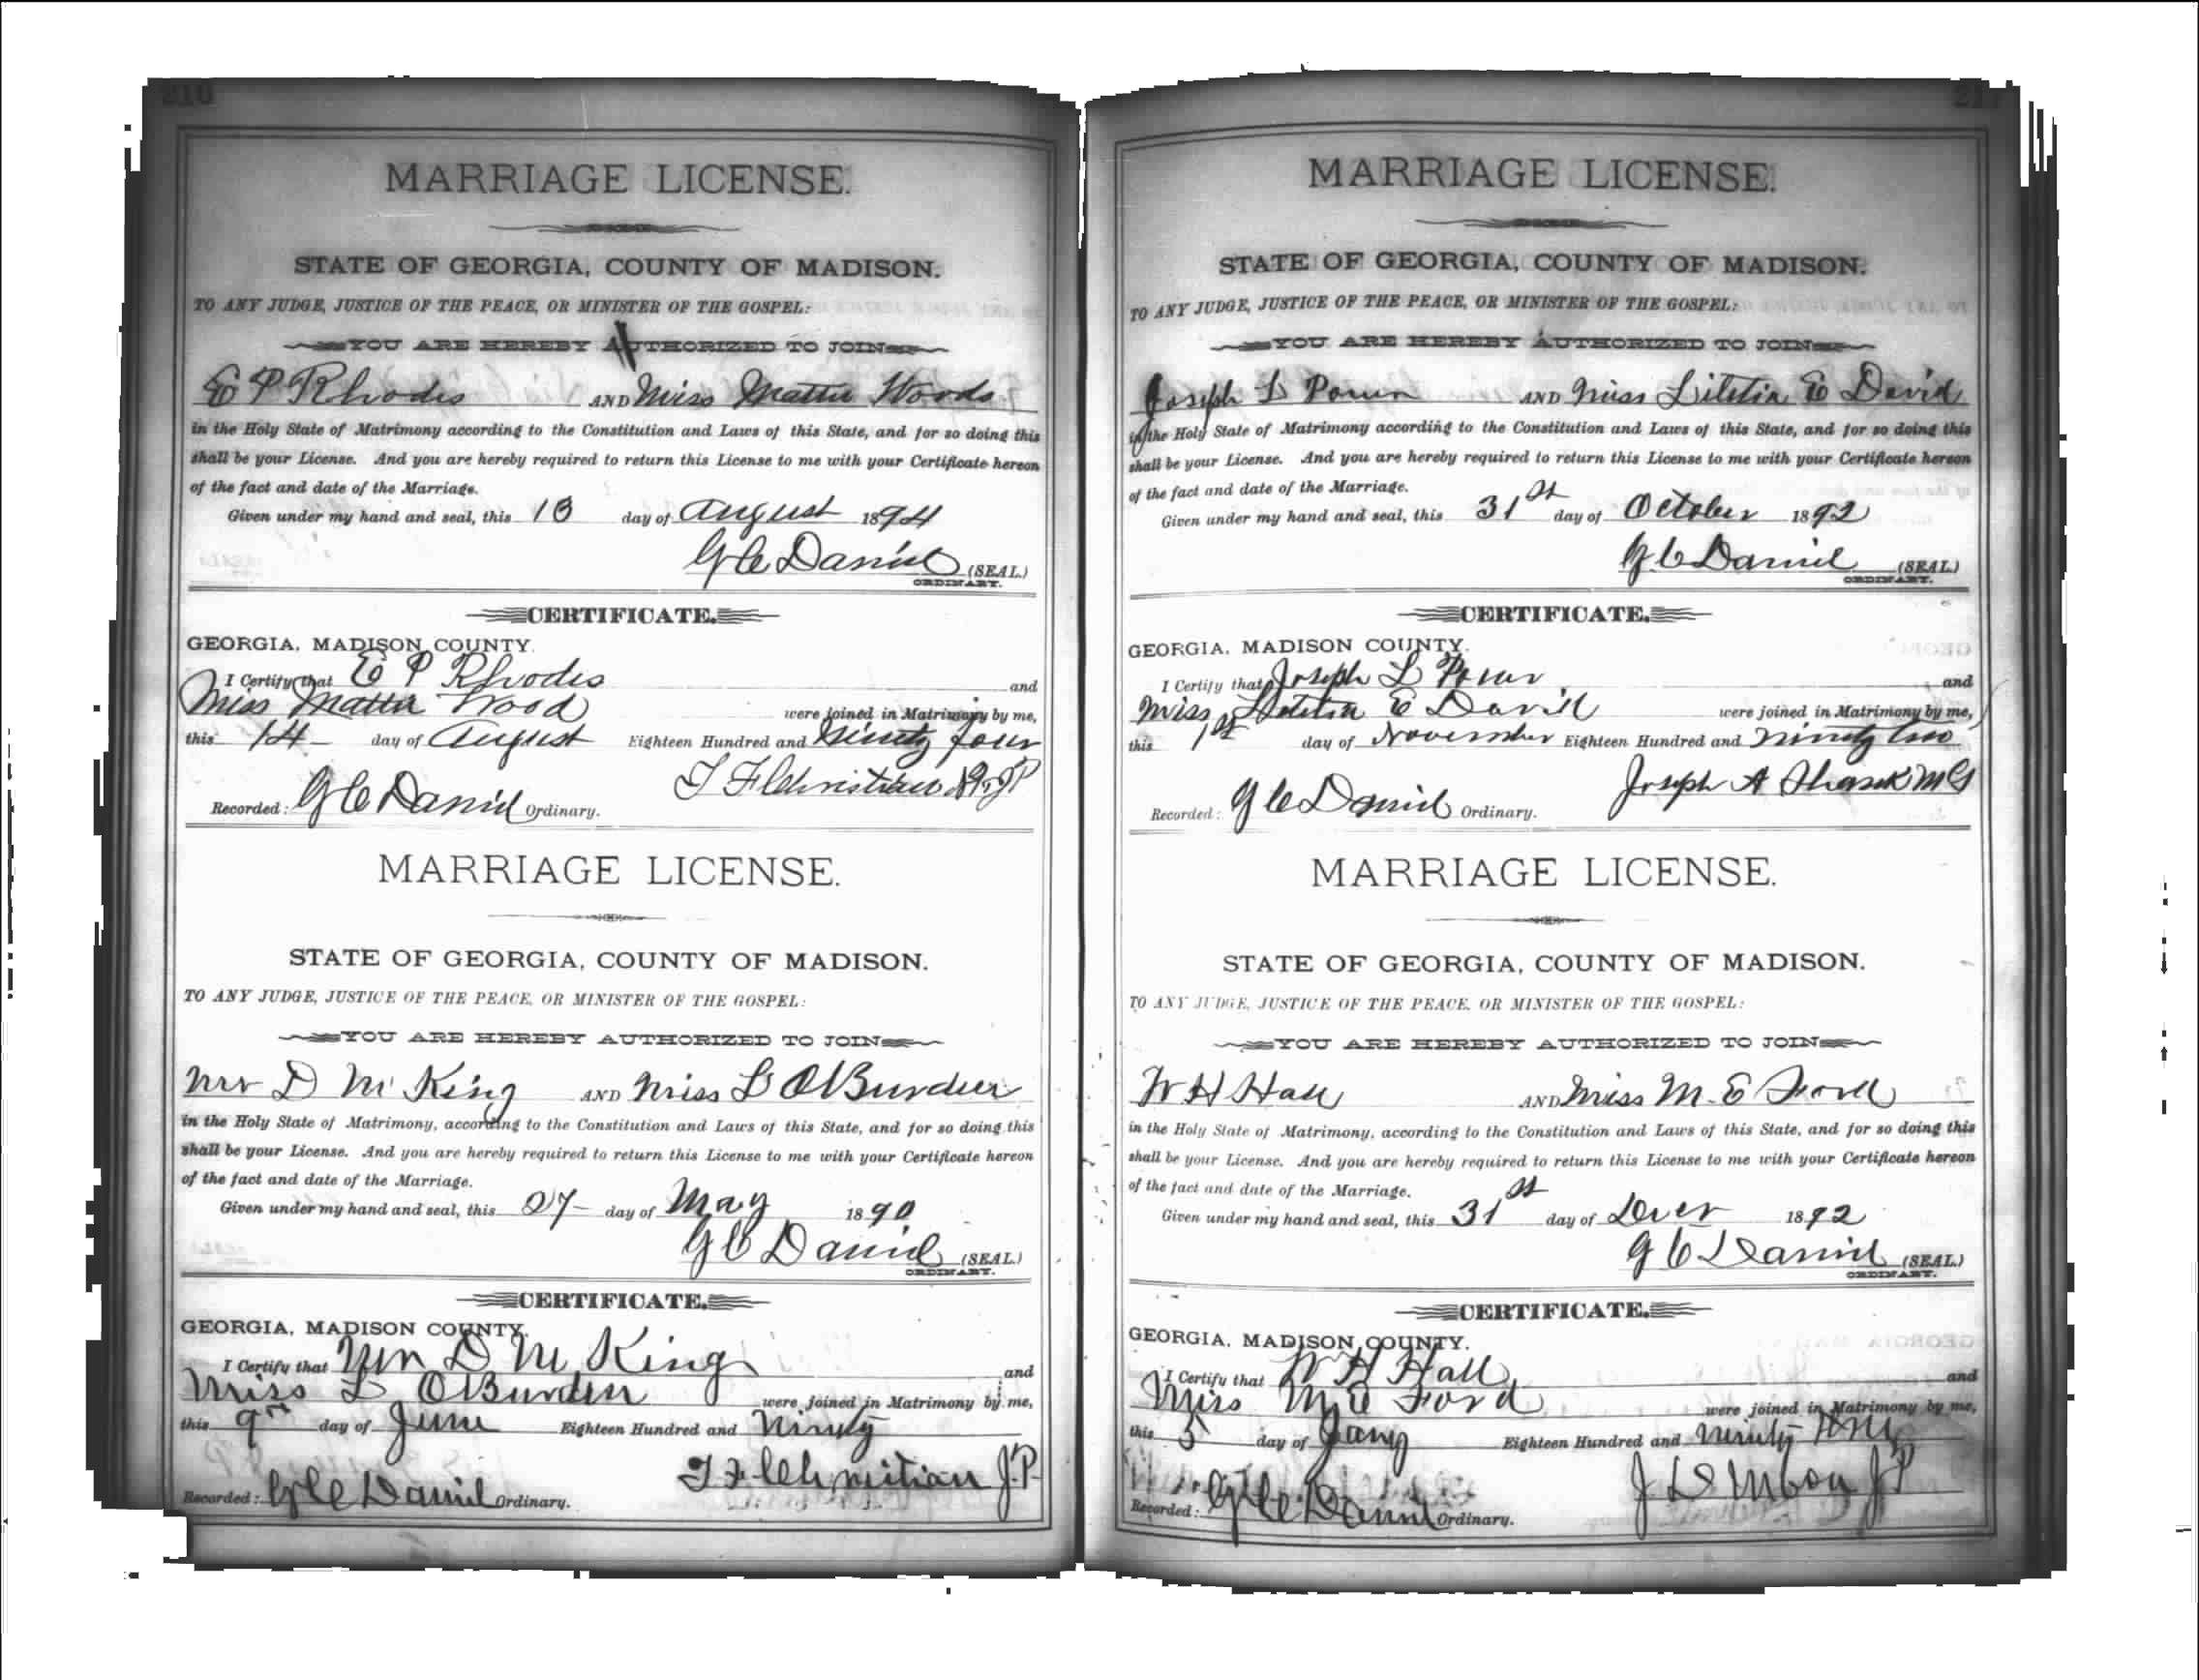 210
MARRIAGE LICENSE.
STATE OF GEORGIA, COUNTY OF MADISON.
TO ANY JUDGE, JUSTICE OF THE PEACE, OR MINISTER OF THE GOSPEL:
YOU ARE HEREBY AUTHORIZED TO JOIN
E P Rhodes AND Miss Mattie Woods
in the Holy State of Matrimony according to the Constitution and Laws of this State, and for so doing this
shall be your License. And you are hereby required to return this License to me with your Certificate hereon
of the fact and date of the Marriage.
Given under my hand and seal, this 13 day of August 1894
G C Daniel (SEAL.)
ORDINARY.
CERTIFICATE.
GEORGIA, MADISON COUNTY.
I Certify that E P Rhodes and
Miss Mattie Wood were joined in Matrimony by me,
this 14 day of August Eighteen Hundred and Ninety four
T F Christian
Recorded: G C Daniel Ordinary.
MARRIAGE LICENSE.
STATE OF GEORGIA, COUNTY OF MADISON.
TO ANY JUDGE, JUSTICE OF THE PEACE, OR MINISTER OF THE GOSPEL:
YOU ARE HEREBY AUTHORIZED TO JOIN
Mr D M King AND Miss L O Burden
in the Holy State of Matrimony, according to the Constitution and Laws of this State, and for so doing this
shall be your License. And you are hereby required to return this License to me with your Certificate hereon
of the fact and date of the Marriage.
Given under my hand and seal, this 27 day of May 1890
G C Daniel (SEAL.)
ORDINARY.
CERTIFICATE.
GEORGIA, MADISON COUNTY.
I Certify that Mr D M King and
Miss L O Burden were joined in Matrimony by me,
this 9th day of June Eighteen Hundred and Ninety
T F Christian J.P.
Recorded: G C Daniel Ordinary.
MARRIAGE LICENSE.
STATE OF GEORGIA, COUNTY OF MADISON.
TO ANY JUDGE, JUSTICE OF THE PEACE, OR MINISTER OF THE GOSPEL:
YOU ARE HEREBY AUTHORIZED TO JOIN
Joseph L Power AND Miss Litetia E David
in the Holy State of Matrimony according to the Constitution and Laws of this State, and for so doing this
shall be your License. And you are hereby required to return this License to me with your Certificate hereon
of the fact and date of the Marriage.
Given under my hand and seal, this 31st day of October 1892
G C Daniel (SEAL.)
ORDINARY.
CERTIFICATE.
GEORGIA, MADISON COUNTY.
I Certify that Joseph L Power and
Miss Litetia E David were joined in Matrimony by me,
this 1st day of November Eighteen Hundred and ninety two
Joseph A MG
Recorded: G C Daniel Ordinary.
MARRIAGE LICENSE.
STATE OF GEORGIA, COUNTY OF MADISON.
TO ANY JUDGE, JUSTICE OF THE PEACE, OR MINISTER OF THE GOSPEL:
YOU ARE HEREBY AUTHORIZED TO JOIN
W H Hall AND Miss M. E Ford
in the Holy State of Matrimony, according to the Constitution and Laws of this State, and for so doing this
shall be your License. And you are hereby required to return this License to me with your Certificate hereon
of the fact and date of the Marriage.
Given under my hand and seal, this 31st day of Decr 1892
G C Daniel (SEAL.)
ORDINARY.
CERTIFICATE.
GEORGIA, MADISON COUNTY.
I Certify that W H Hall and
Miss M E Ford were joined in Matrimony by me,
this 5 day of Jany Eighteen Hundred and ninety
J P
Recorded: G C Daniel Ordinary.